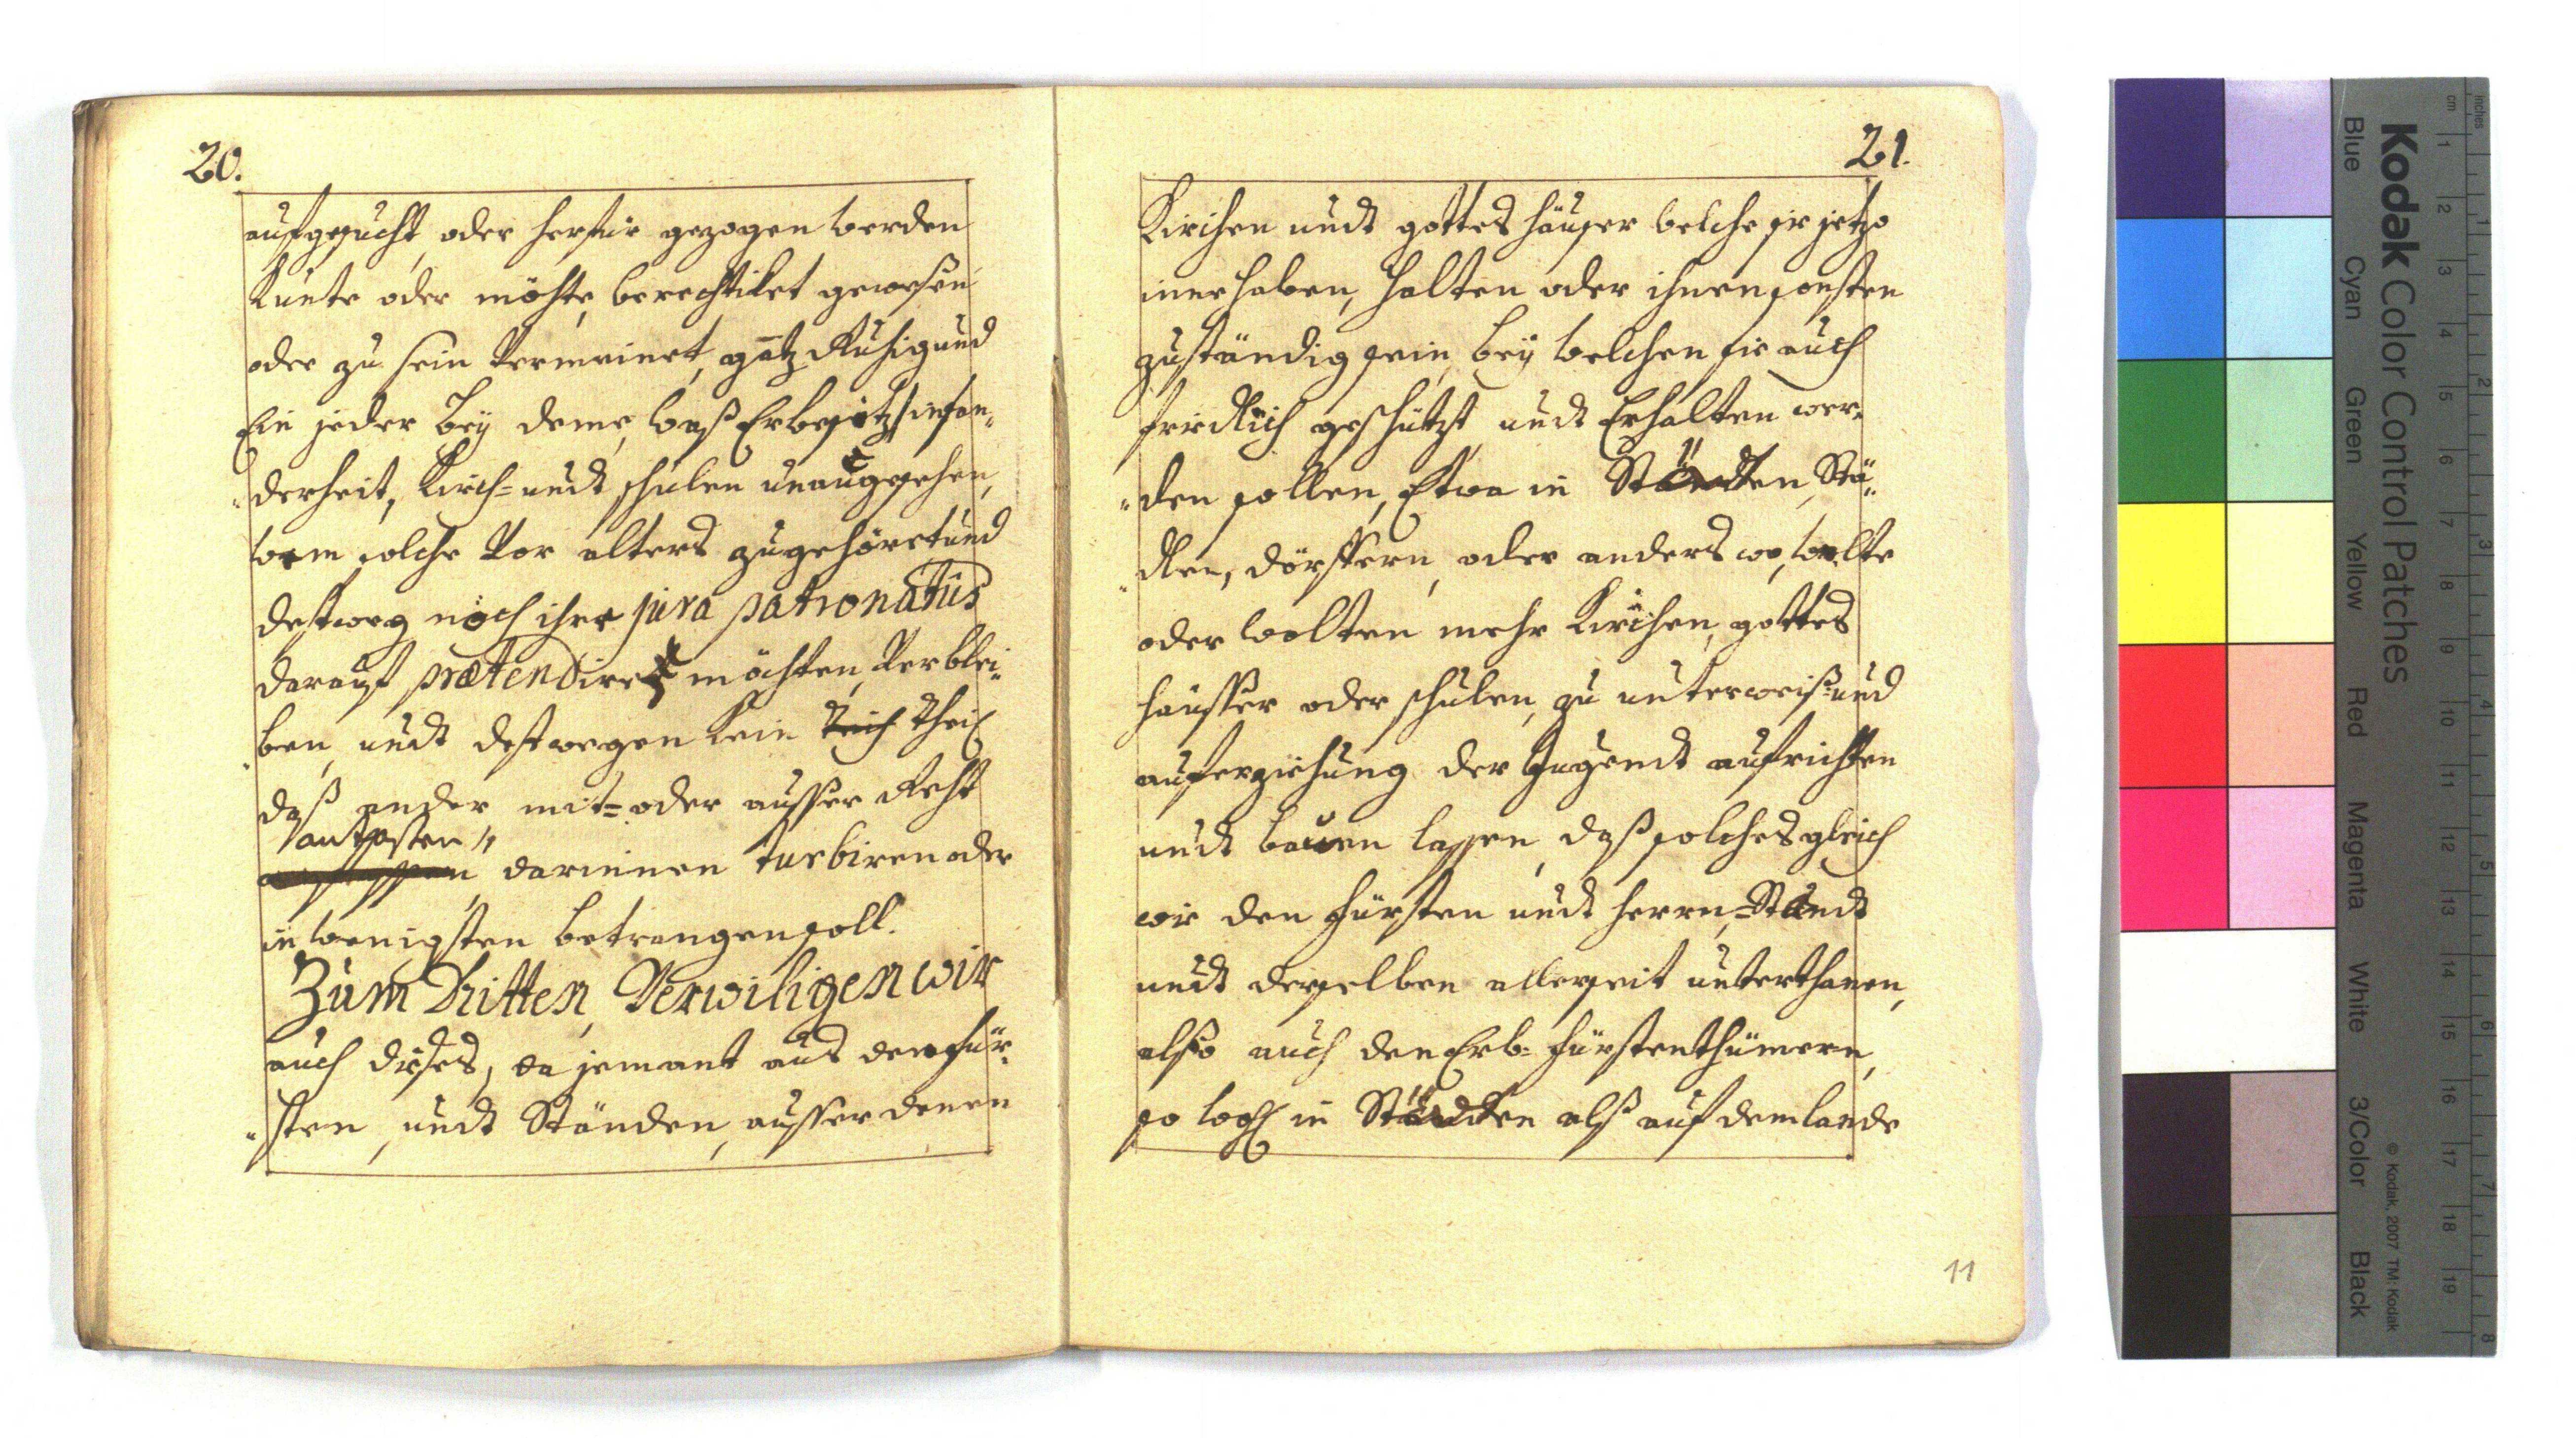 20.
aufgesucht, oder herfür gezogen werden
kunte oder möchte, berechtiket gewesen
oder zu sein vermeinet, gātz Ruhig und
Ein jeder Bey deme, waß Er besitzt inson-
„derheit, Kirch= undt schulen unaugesehen,
wem solche Vor alters zugehöret und
destweg noch ihre jura patronatus
darauf prætendiren möchten, Verblei„
„ben, undt destwegen kein Theil
daß ander mit= oder ausser Recht
antasten„
darinnen turbiren oder
in wenigsten betrangen soll.
Zum Dritten, Verwiligen wir
auch dises, da jemant aus den Für-
„sten, undt Ständen, ausser denen
21.
Kirchen undt gottes häuser welche sie jetzo
innehaben, halten oder ihnen sonsten
zuständig sein, bey welchen sie auch
fridlich geschützt, undt Erhalten wer-
„den sollen, Etwa in Städten, Stä„
„dlen, dörffern, oder anders wo, wolte
oder wolten mehr Kirchen, gottes
häusser oder schulen, zu unterweiß= und
auferziehung der Jugendt aufrichten
undt bauen lassen, daß solches gleich
wie den Fürsten undt herrn,=Standt
undt derselben allerseit unterthanen,
also auch den Erb= Fürstenthümern,
so wohl in Städten alß auf dem lande
11
Kodak Color Control Patches
Blue Cyan Green Yellow Red Magenta White 3/Color Black
© Kodak, 2007 TM: Kodak
inches 1 2 3 4 5 6 7 8
cm 1 2 3 4 5 6 7 8 9 10 11 12 13 14 15 16 17 18 19